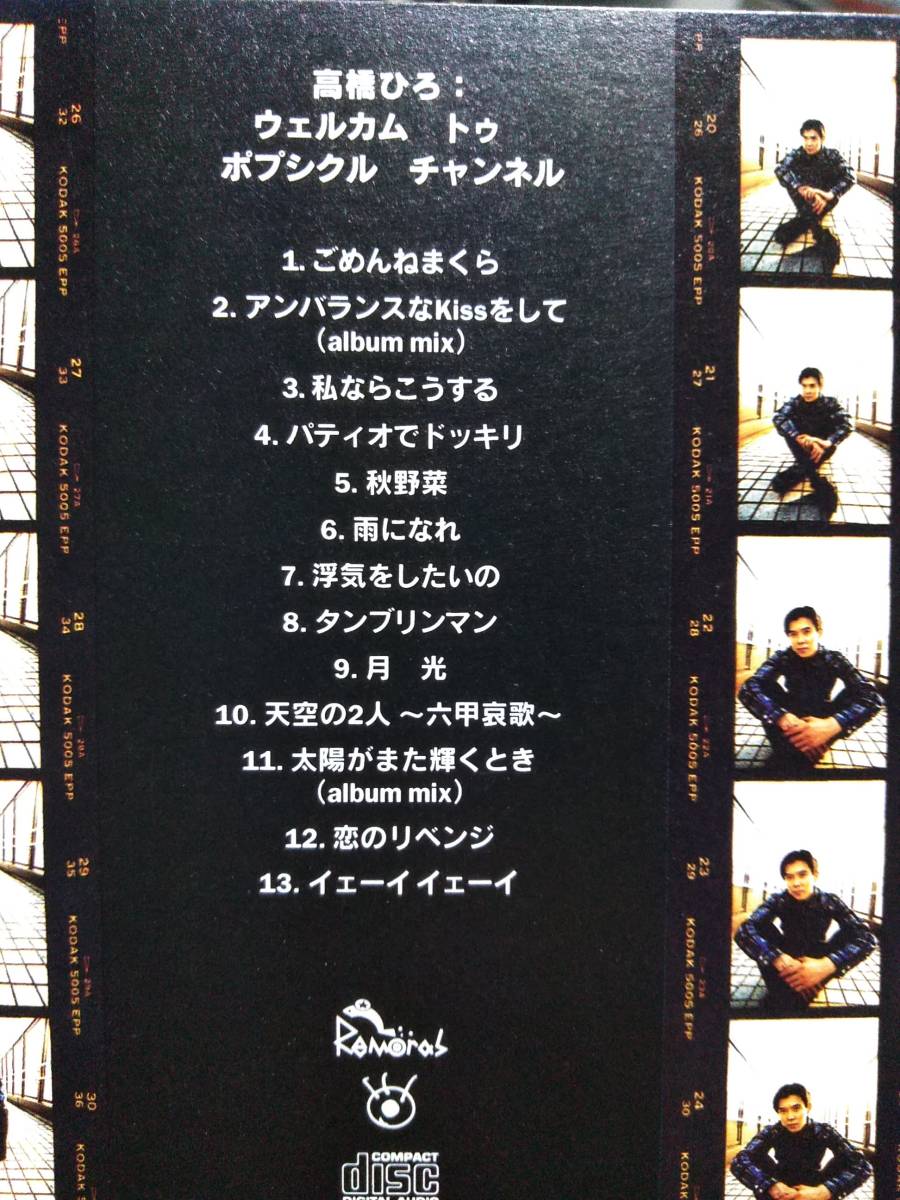 高橋ひろ：
ウェルカム　トゥ
ポプシクル　チャンネル
1. ごめんねまくら
2. アンバランスなKissをして
（album mix）
3. 私ならこうする
4. パティオでドッキリ
5. 秋野菜
6. 雨になれ
7. 浮気をしたいの
8. タンブリンマン
9. 月　光
10. 天空の2人 ～六甲哀歌～
11. 太陽がまた輝くとき
（album mix）
12. 恋のリベンジ
13. イェーイ イェーイ
Remoras
COMPACT
disc
DIGITAL AUDIO
EPP
26
32
KODAK 5005 EPP
26A
27
33
KODAK 5005 EPP
27A
28
34
KODAK 5005 EPP
28A
29
35
KODAK 5005 EPP
29A
30
36
KODAK 5
PP
20
26
KODAK 5005 EPP
20A
21
27
KODAK 5005 EPP
21A
22
28
KODAK 5005 EPP
22A
23
29
KODAK 5005 EPP
23A
24
30
KODAK 5